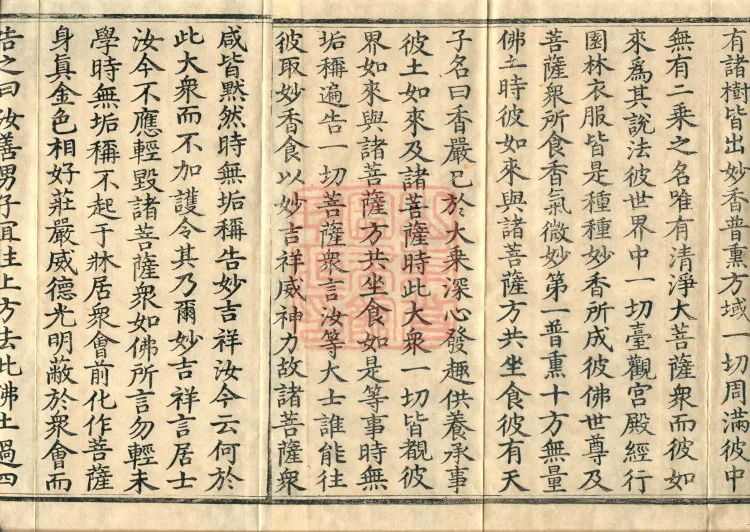 有諸樹皆出妙香普熏方域一切周滿彼中
無有二乘之名唯有清淨大菩薩衆而彼如
來爲其說法彼世界中一切臺觀宮殿經行
園林衣服皆是種種妙香所成彼佛世尊及
菩薩衆所食香氣微妙第一普熏十方無量
佛土時彼如來與諸菩薩方共坐食彼有天
子名曰香嚴已於大乘深心發趣供養承事
彼土如來及諸菩薩時此大衆一切皆覩彼
界如來與諸菩薩方共坐食如是等事時無
垢稱遍告一切菩薩衆言汝等大士誰能往
彼取妙香食以妙吉祥威神力故諸菩薩衆
咸皆默然時無垢稱告妙吉祥汝今云何於
此大衆而不加護令其乃爾妙吉祥言居士
汝今不應輕毀諸菩薩衆如佛所言勿輕未
學時無垢稱不起于牀居衆會前化作菩薩
身真金色相好莊嚴威德光明蔽於衆會而
告之曰汝善男子宜往上方去此佛土過四